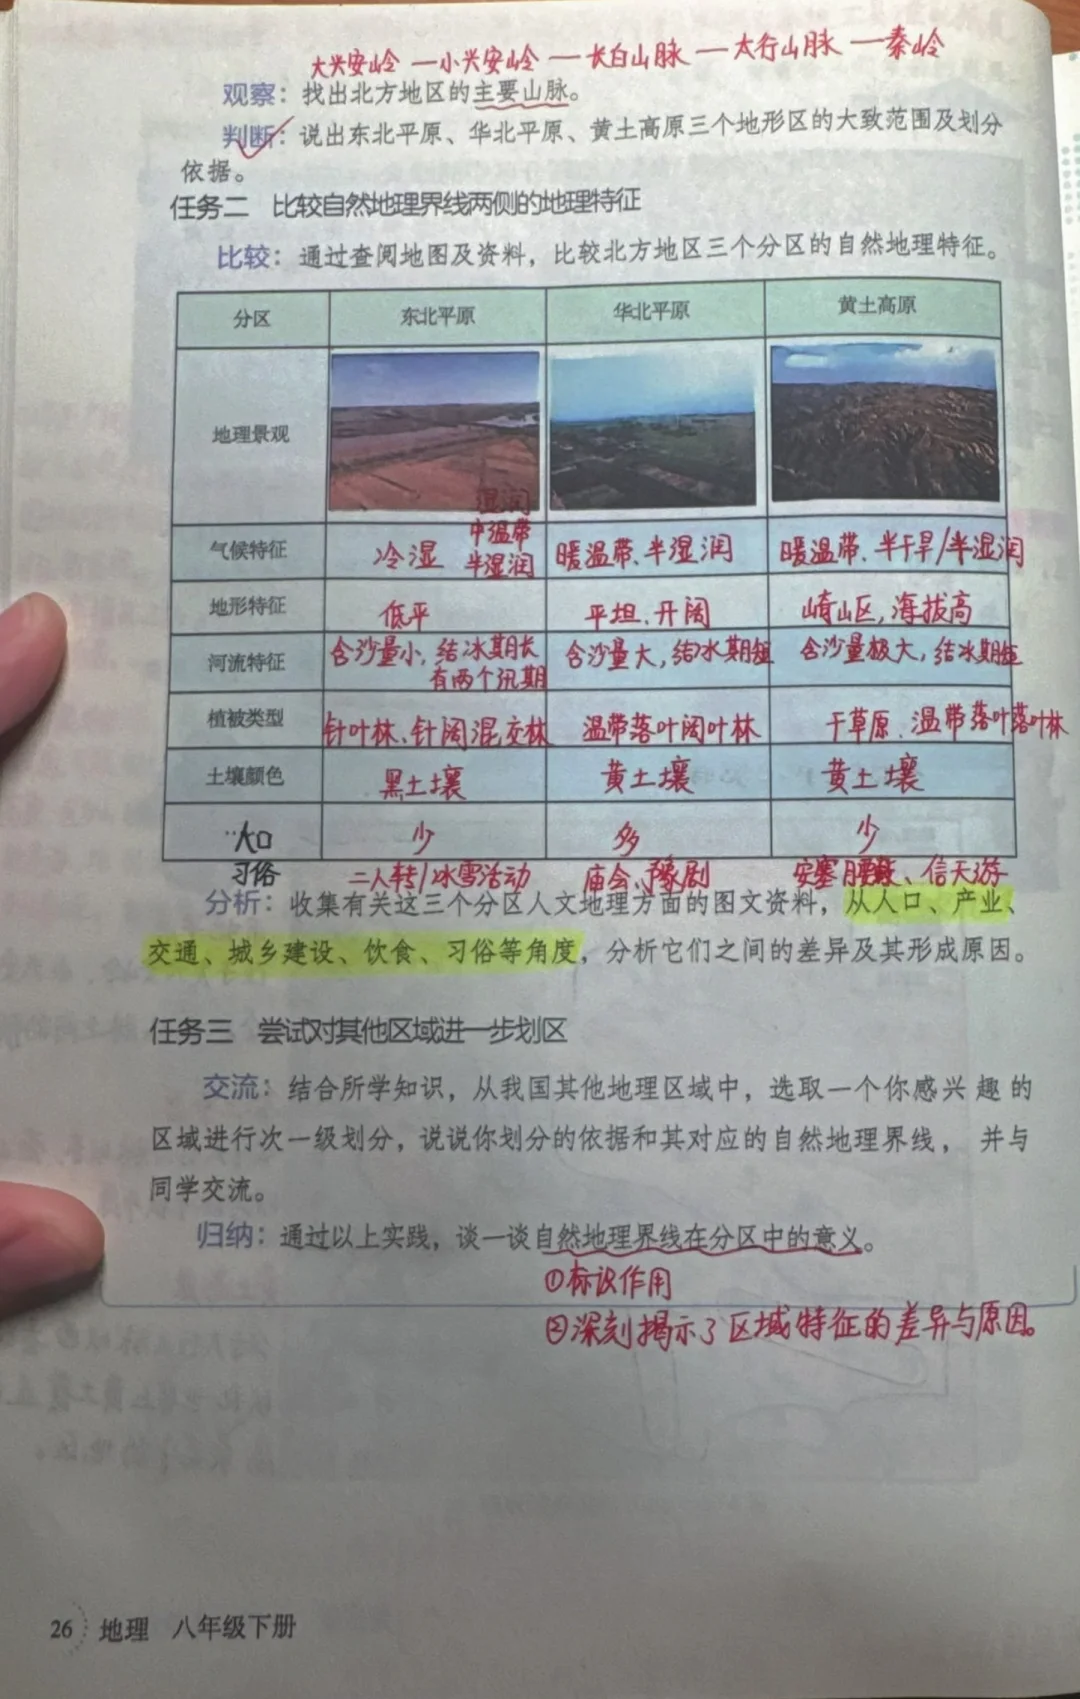 大兴安岭—小兴安岭—长白山脉—太行山脉—秦岭
观察：找出北方地区的主要山脉。
判断：说出东北平原、华北平原、黄土高原三个地形区的大致范围及划分
依据。
任务二 比较自然地理界线两侧的地理特征
比较：通过查阅地图及资料，比较北方地区三个分区的自然地理特征。
分区 东北平原 华北平原 黄土高原
地理景观
湿润
中温带
气候特征 冷湿 半湿润 暖温带、半湿润 暖温带、半干旱/半湿润
地形特征 低平 平坦、开阔 崎山区，海拔高
河流特征 含沙量小，结冰期长 含沙量大，结冰期短 含沙量极大，结冰期短
有两个汛期
植被类型 针叶林、针阔混交林 温带落叶阔叶林 干草原、温带落叶落叶林
土壤颜色 黑土壤 黄土壤 黄土壤
人口 少 多 少
习俗 二人转/冰雪活动 庙会、豫剧 安塞腰鼓、信天游
分析：收集有关这三个分区人文地理方面的图文资料，从人口、产业、
交通、城乡建设、饮食、习俗等角度，分析它们之间的差异及其形成原因。
任务三 尝试对其他区域进一步划区
交流：结合所学知识，从我国其他地理区域中，选取一个你感兴趣的
区域进行次一级划分，说说你划分的依据和其对应的自然地理界线，并与
同学交流。
归纳：通过以上实践，谈一谈自然地理界线在分区中的意义。
①标识作用
②深刻揭示了区域特征的差异与原因。
26 地理 八年级下册